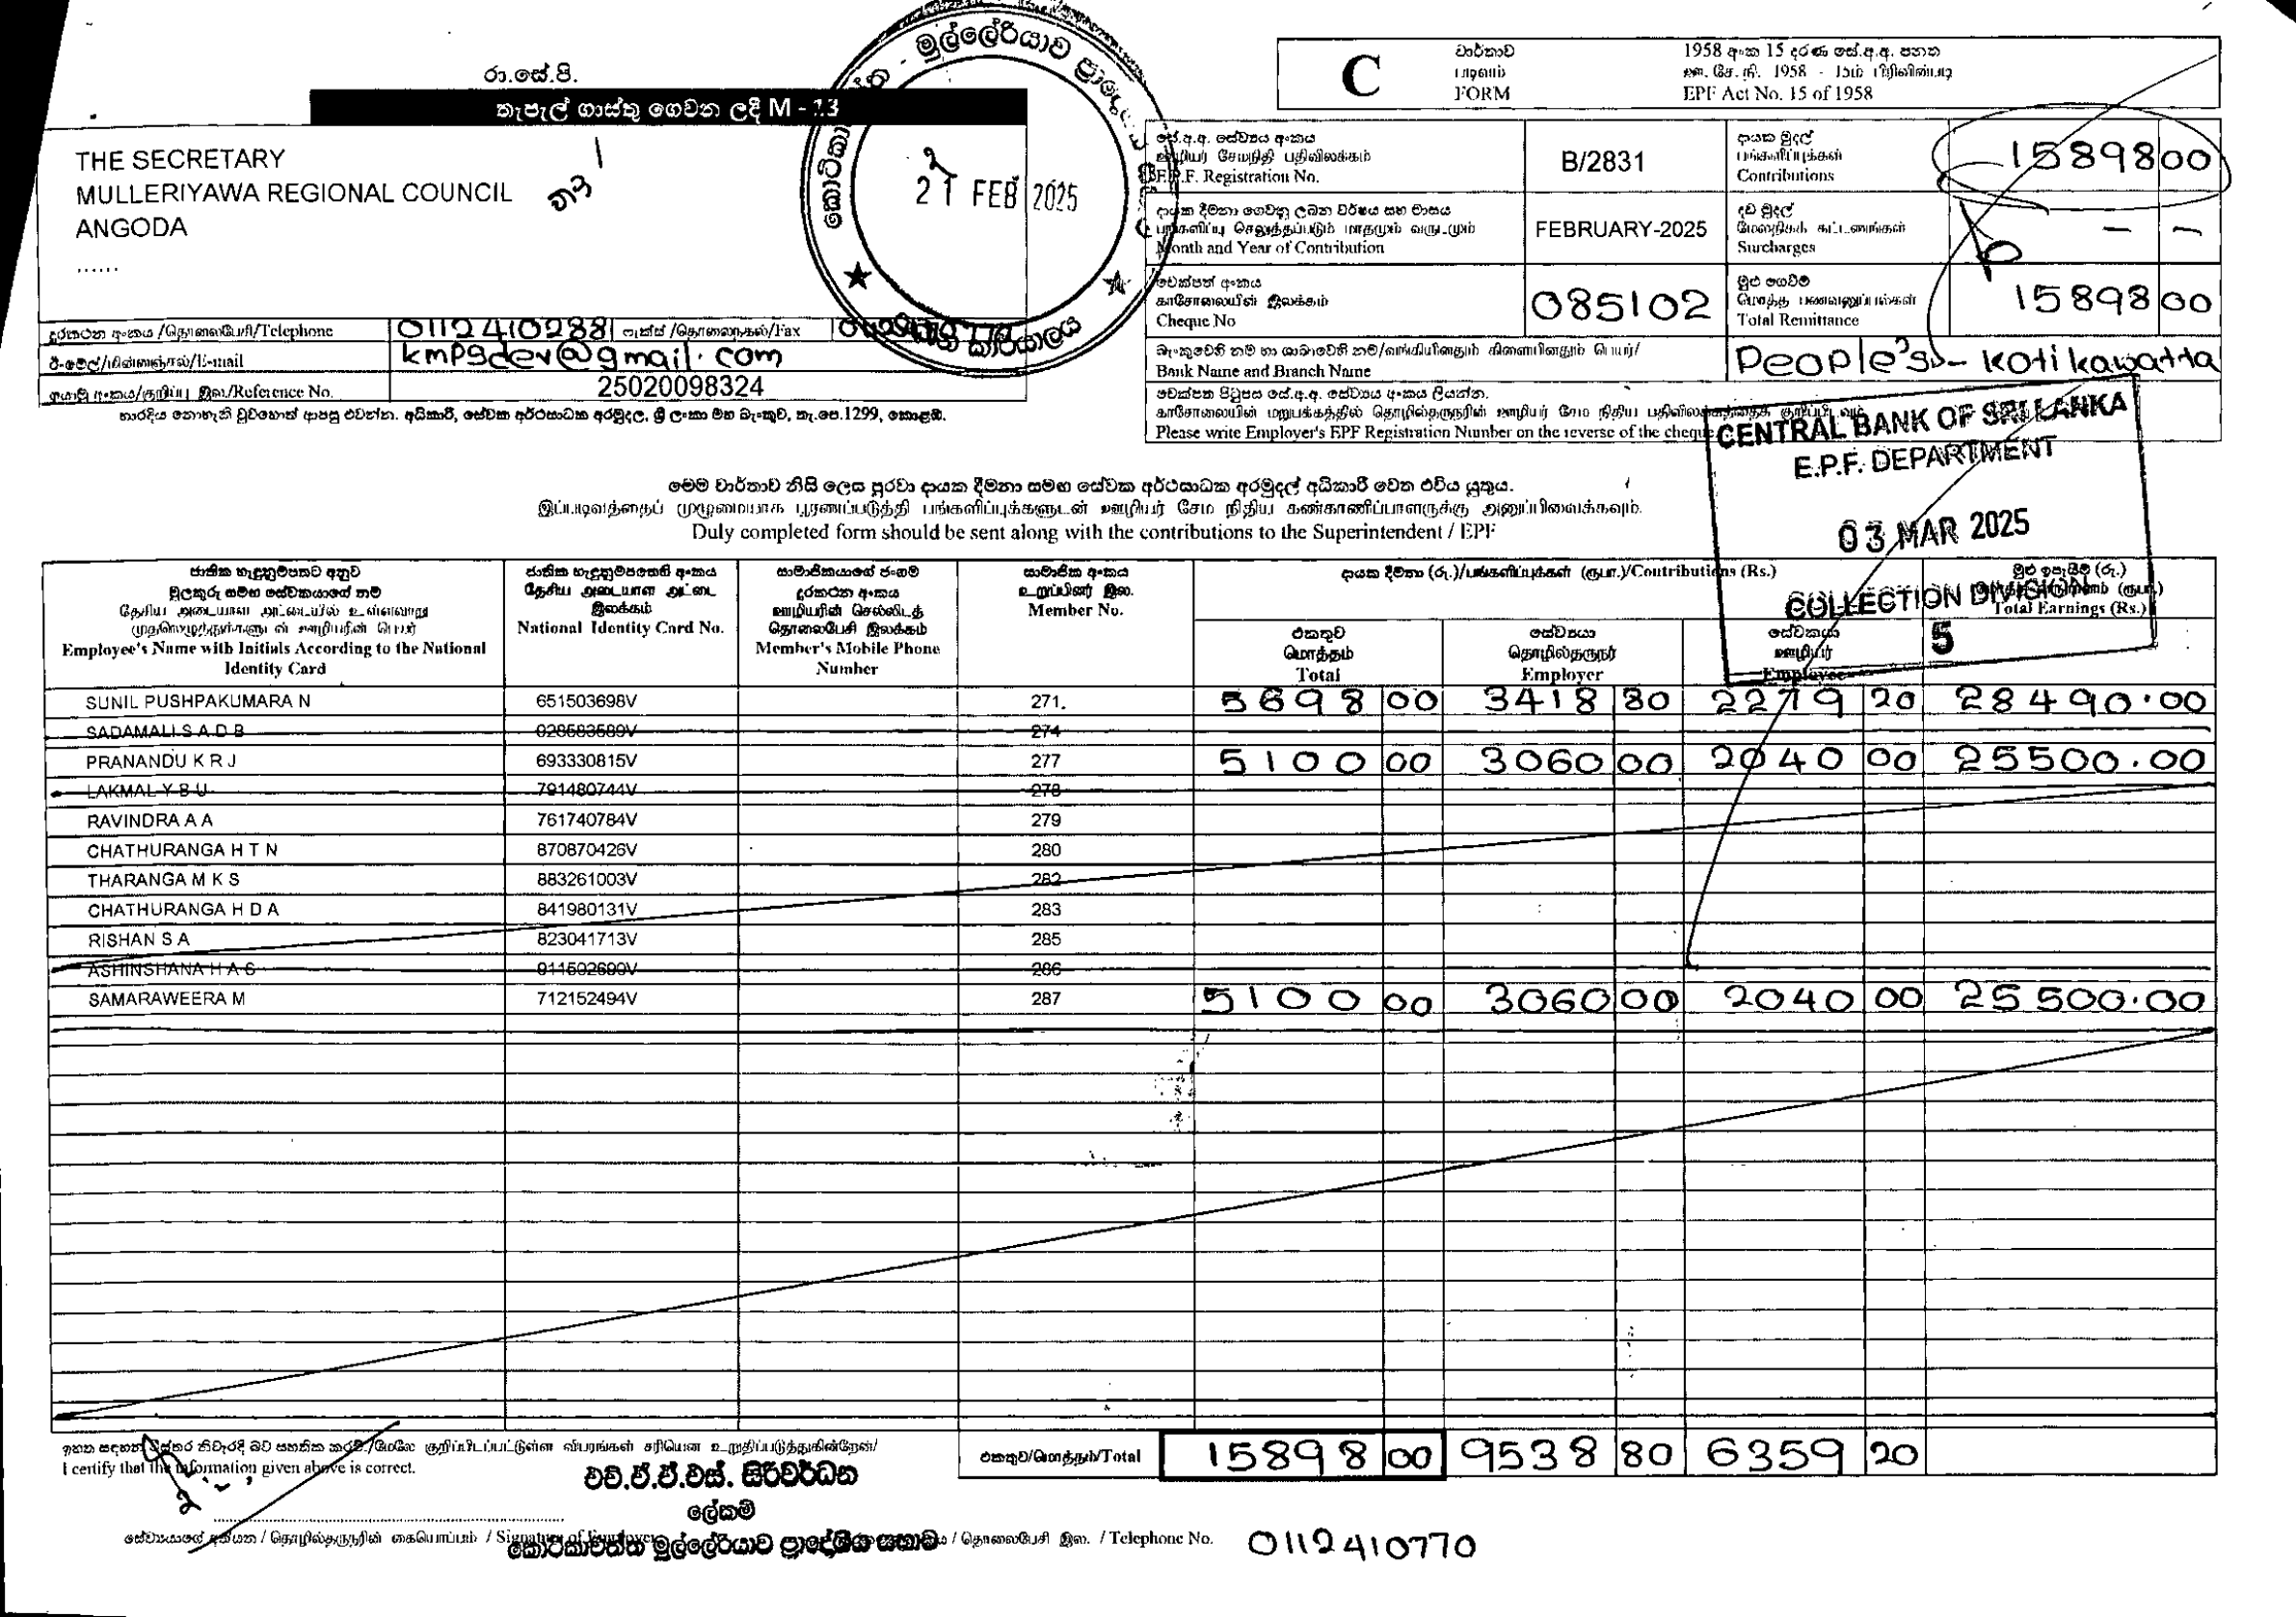 රා.සේ.පි.
තැපැල් ගාස්තු ගෙවන ලදී M - 13
THE SECRETARY
MULLERIYAWA REGIONAL COUNCIL
ANGODA
......
21 FEB 2025
දුරකථන අංකය /தொலைபேசி/Telephone 0112410288 ෆැක්ස් /தொலைநகல்/Fax
ඊ-මේල්/மின்னஞ்சல்/E-mail kmpsdev@gmail.com
යොමු අංකය/குறிப்பு இல/Reference No. 25020098324
භාරදිය නොහැකි වුවහොත් ආපසු එවන්න. අධිකාරී, සේවක අර්ථසාධක අරමුදල, ශ්‍රී ලංකා මහ බැංකුව, තැ.පෙ.1299, කොළඹ.
C
වාර්තාව
படிவம்
FORM
1958 අංක 15 දරණ සේ.අ.අ. පනත
ஊ. சே. நி. 1958 - 15ம் பிரிவின்படி
EPF Act No. 15 of 1958
සේ.අ.අ. සේව්‍යය අංකය
ஊழியர் சேமநிதி பதிவிலக்கம்
E.P.F. Registration No.
B/2831
දායක මුදල්
பங்களிப்புக்கள்
Contributions
15898 00
දායක දීමනා ගෙවනු ලබන වර්ෂය සහ මාසය
பங்களிப்பு செலுத்தப்படும் மாதமும் வருடமும்
Month and Year of Contribution
FEBRUARY-2025
දඩ මුදල්
மேலதிகக் கட்டணங்கள்
Surcharges
— —
චෙක්පත් අංකය
காசோலையின் இலக்கம்
Cheque No
085102
මුළු ගෙවීම්
மொத்த பணவனுப்பல்கள்
Total Remittance
15898 00
බැංකුවෙහි නම හා ශාඛාවෙහි නම/வங்கியினதும் கிளையினதும் பெயர்/
Bank Name and Branch Name
People's - Kotikawatta
චෙක්පත පිටුපස සේ.අ.අ. සේව්‍යය අංකය ලියන්න.
காசோலையின் மறுபக்கத்தில் தொழில்தருநரின் ஊழியர் சேம நிதிய பதிவிலக்கத்தைக் குறிப்பிடவும்
Please write Employer's EPF Registration Number on the reverse of the cheque
CENTRAL BANK OF SRI LANKA
E.P.F. DEPARTMENT
03 MAR 2025
COLLECTION DIVISION
5
මෙම වාර්තාව නිසි ලෙස පුරවා දායක දීමනා සමඟ සේවක අර්ථසාධක අරමුදල් අධිකාරී වෙත එවිය යුතුය.
இப்படிவத்தைப் முழுமையாக பூரணப்படுத்தி பங்களிப்புக்களுடன் ஊழியர் சேம நிதிய கண்காணிப்பாளருக்கு அனுப்பிவைக்கவும்.
Duly completed form should be sent along with the contributions to the Superintendent / EPF
ජාතික හැඳුනුම්පතට අනුව
මුලකුරු සමඟ සේවකයාගේ නම
தேசிய அடையாள அட்டையில் உள்ளவாறு
முதலெழுத்துக்களுடன் ஊழியரின் பெயர்
Employee's Name with Initials According to the National
Identity Card
ජාතික හැඳුනුම්පතෙහි අංකය
தேசிய அடையாள அட்டை
இலக்கம்
National Identity Card No.
සාමාජිකයාගේ ජංගම
දුරකථන අංකය
ஊழியரின் செல்லிடத்
தொலைபேசி இலக்கம்
Member's Mobile Phone
Number
සාමාජික අංකය
உறுப்பினர் இல.
Member No.
දායක දීමනා (රු.)/பங்களிப்புக்கள் (ரூபா.)/Contributions (Rs.)
එකතුව
மொத்தம்
Total
සේව්‍යයා
தொழில்தருநர்
Employer
සේවකයා
ஊழியர்
Employee
මුළු ඉපැයීම් (රු.)
Total Earnings (Rs.)
SUNIL PUSHPAKUMARA N 651503698V 271. 5698 00 3418 80 2279 20 28490.00
SADAMALI S A D B 928583589V 274
PRANANDU K R J 693330815V 277 5100 00 3060 00 2040 00 25500.00
LAKMAL Y B U 791480744V 278
RAVINDRA A A 761740784V 279
CHATHURANGA H T N 870870426V 280
THARANGA M K S 883261003V 282
CHATHURANGA H D A 841980131V 283
RISHAN S A 823041713V 285
ASHINSHANA H A S 911502690V 286
SAMARAWEERA M 712152494V 287 5100 00 3060 00 2040 00 25500.00
එකතුව/மொத்தம்/Total 15898 00 9538 80 6359 20
ඉහත සඳහන් විස්තර නිවැරදි බව සහතික කරමි./மேலே குறிப்பிடப்பட்டுள்ள விபரங்கள் சரியென உறுதிப்படுத்துகின்றேன்/
I certify that the information given above is correct.
එච්.ඒ.ඒ.එස්. සිරිවර්ධන
ලේකම්
කොටිකාවත්ත මුල්ලේරියාව ප්‍රාදේශිය සභාව
සේව්‍යයාගේ අත්සන / தொழில்தருநரின் கையொப்பம் / Signature of Employer
/ தொலைபேசி இல. / Telephone No. 0112410770